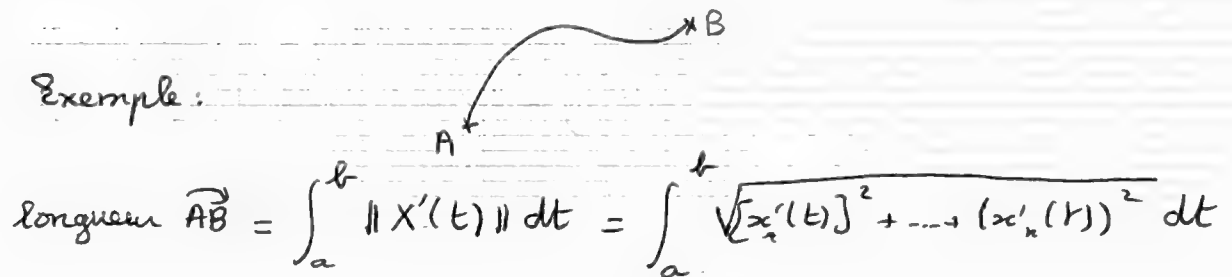 B
Exemple :
A
longueur \overset{\frown}{AB} = \int_a^b \| X'(t) \| dt = \int_a^b \sqrt{[x'_1(t)]^2 + ... + (x'_n(t))^2} dt